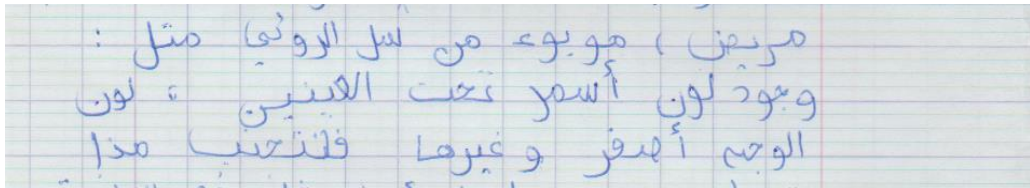 مريض ، موبوء من لسل الروئي مثل :
وجود لون أسمر تحت العينين ، لون
الوجه أصفر و غيرها فنتجنب هذا